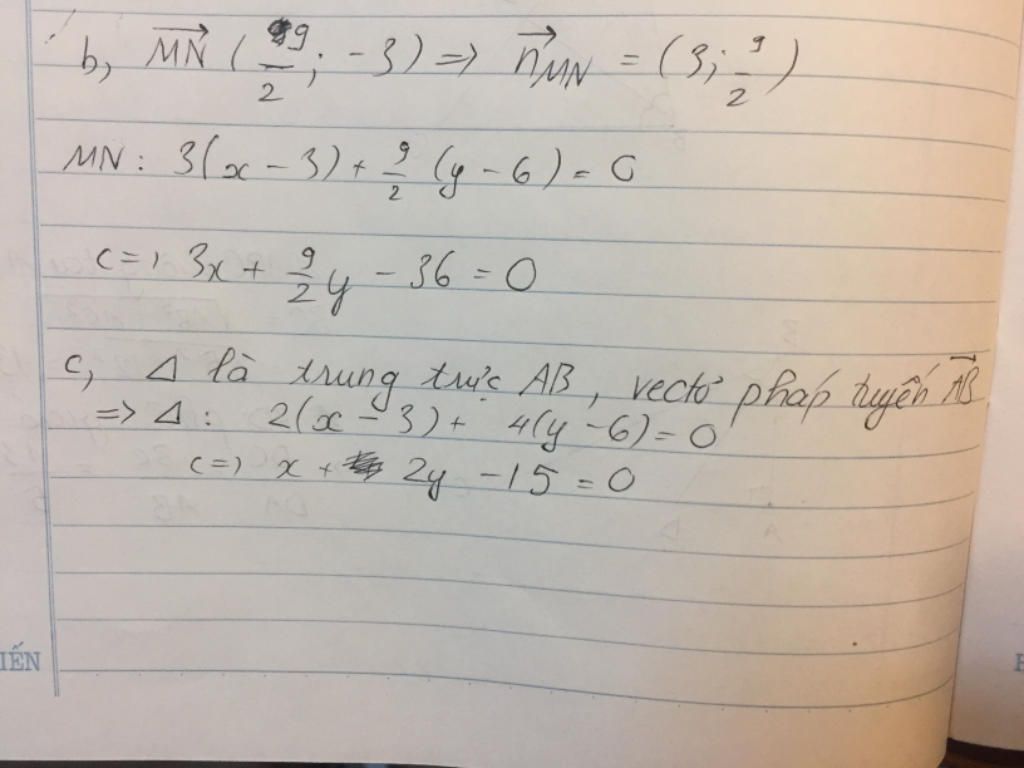 b, MN→ (9/2; -3) => n→MN = (3; 9/2)
MN: 3(x - 3) + 9/2 (y - 6) = 0
<=> 3x + 9/2 y - 36 = 0
c, Δ là trung trực AB, vectơ pháp tuyến AB→
=> Δ: 2(x - 3) + 4(y - 6) = 0
<=> x + 2y - 15 = 0
IẾN